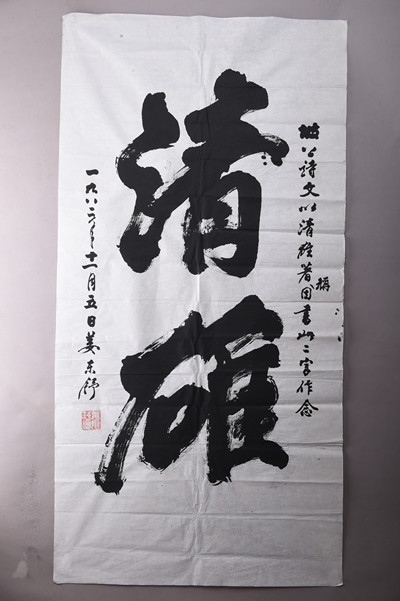 坡公詩文以清雄著稱因書此二字作念
清雄
一九八二年十一月五日姜东舒